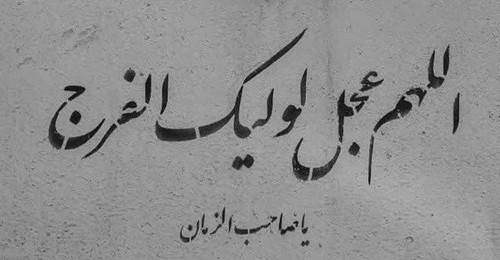 اللهم عجل لولیک الفرج
یا صاحب الزمان